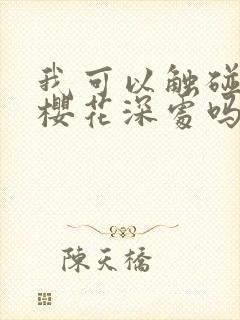 我可以触碰
樱花深处吗
陳天橋